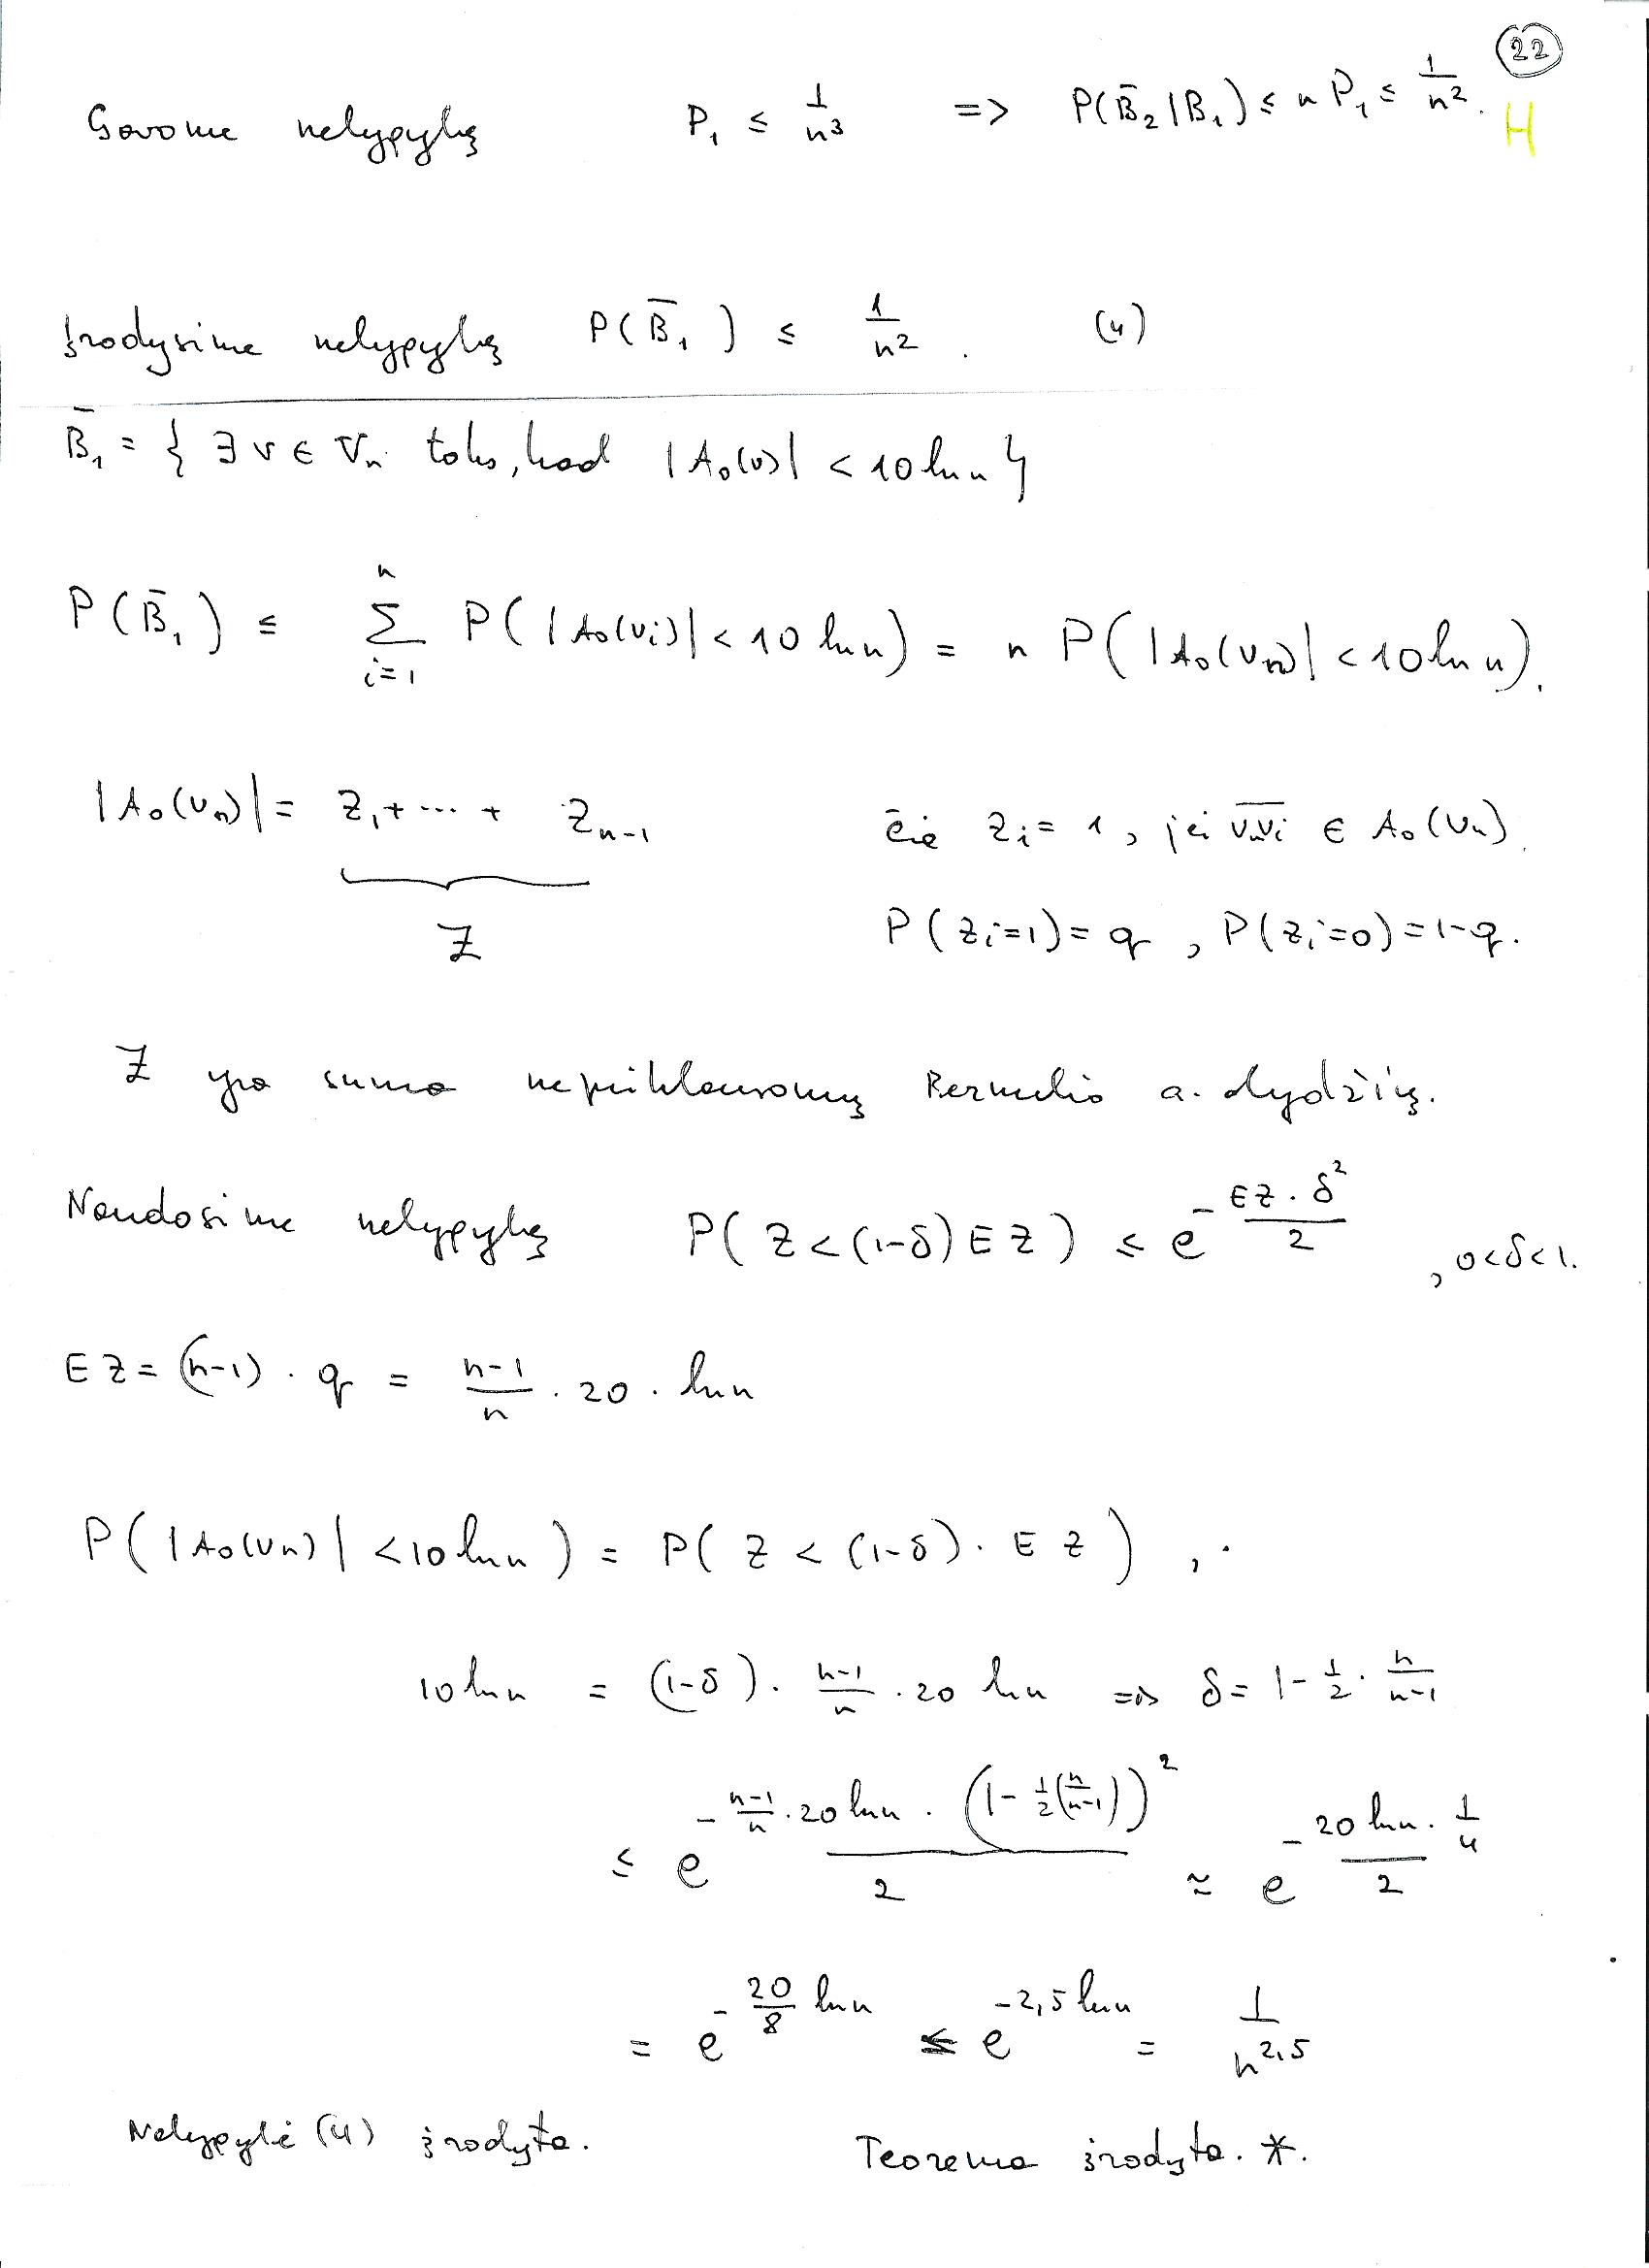 22
Gavome nelygybę P₁ ≤ 1/n³ => P(B̄₂|B₁) ≤ n P₁ ≤ 1/n².
H
Įrodysime nelygybę P(B̄₁) ≤ 1/n². (4)
B̄₁ = { ∃ v ∈ Vₙ toks, kad |A₀(v)| < 10 ln n }
P(B̄₁) ≤ Σ_{i=1}^{n} P(|A₀(vᵢ)| < 10 ln n) = n P(|A₀(vₙ)| < 10 ln n).
|A₀(vₙ)| = Z₁ + ... + Zₙ₋₁ čia Zᵢ = 1, jei v̅ₙv̅ᵢ ∈ A₀(vₙ).
Z P(Zᵢ=1) = q, P(Zᵢ=0) = 1-q.
Z yra suma nepriklausomų Bernulio a. dydžių.
Naudosime nelygybę P(Z < (1-δ) E Z) ≤ e^{-(EZ·δ²)/2}, 0<δ<1.
E Z = (n-1) · q = (n-1)/n · 20 · ln n
P(|A₀(vₙ)| < 10 ln n) = P(Z < (1-δ) · E Z), .
10 ln n = (1-δ) · (n-1)/n · 20 ln n => δ = 1 - 1/2 · n/(n-1)
≤ e^{-((n-1)/n · 20 ln n · (1 - 1/2(n/(n-1)))²)/2} ≈ e^{-(20 ln n)/2 · 1/4}
= e^{-20/8 ln n} ≤ e^{-2,5 ln n} = 1/n^{2,5}
Nelygybė (4) įrodyta. Teorema įrodyta. *.